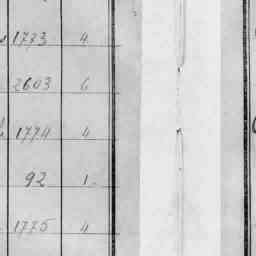 1773 4
2603 6
1774 4
92 1
1775 4